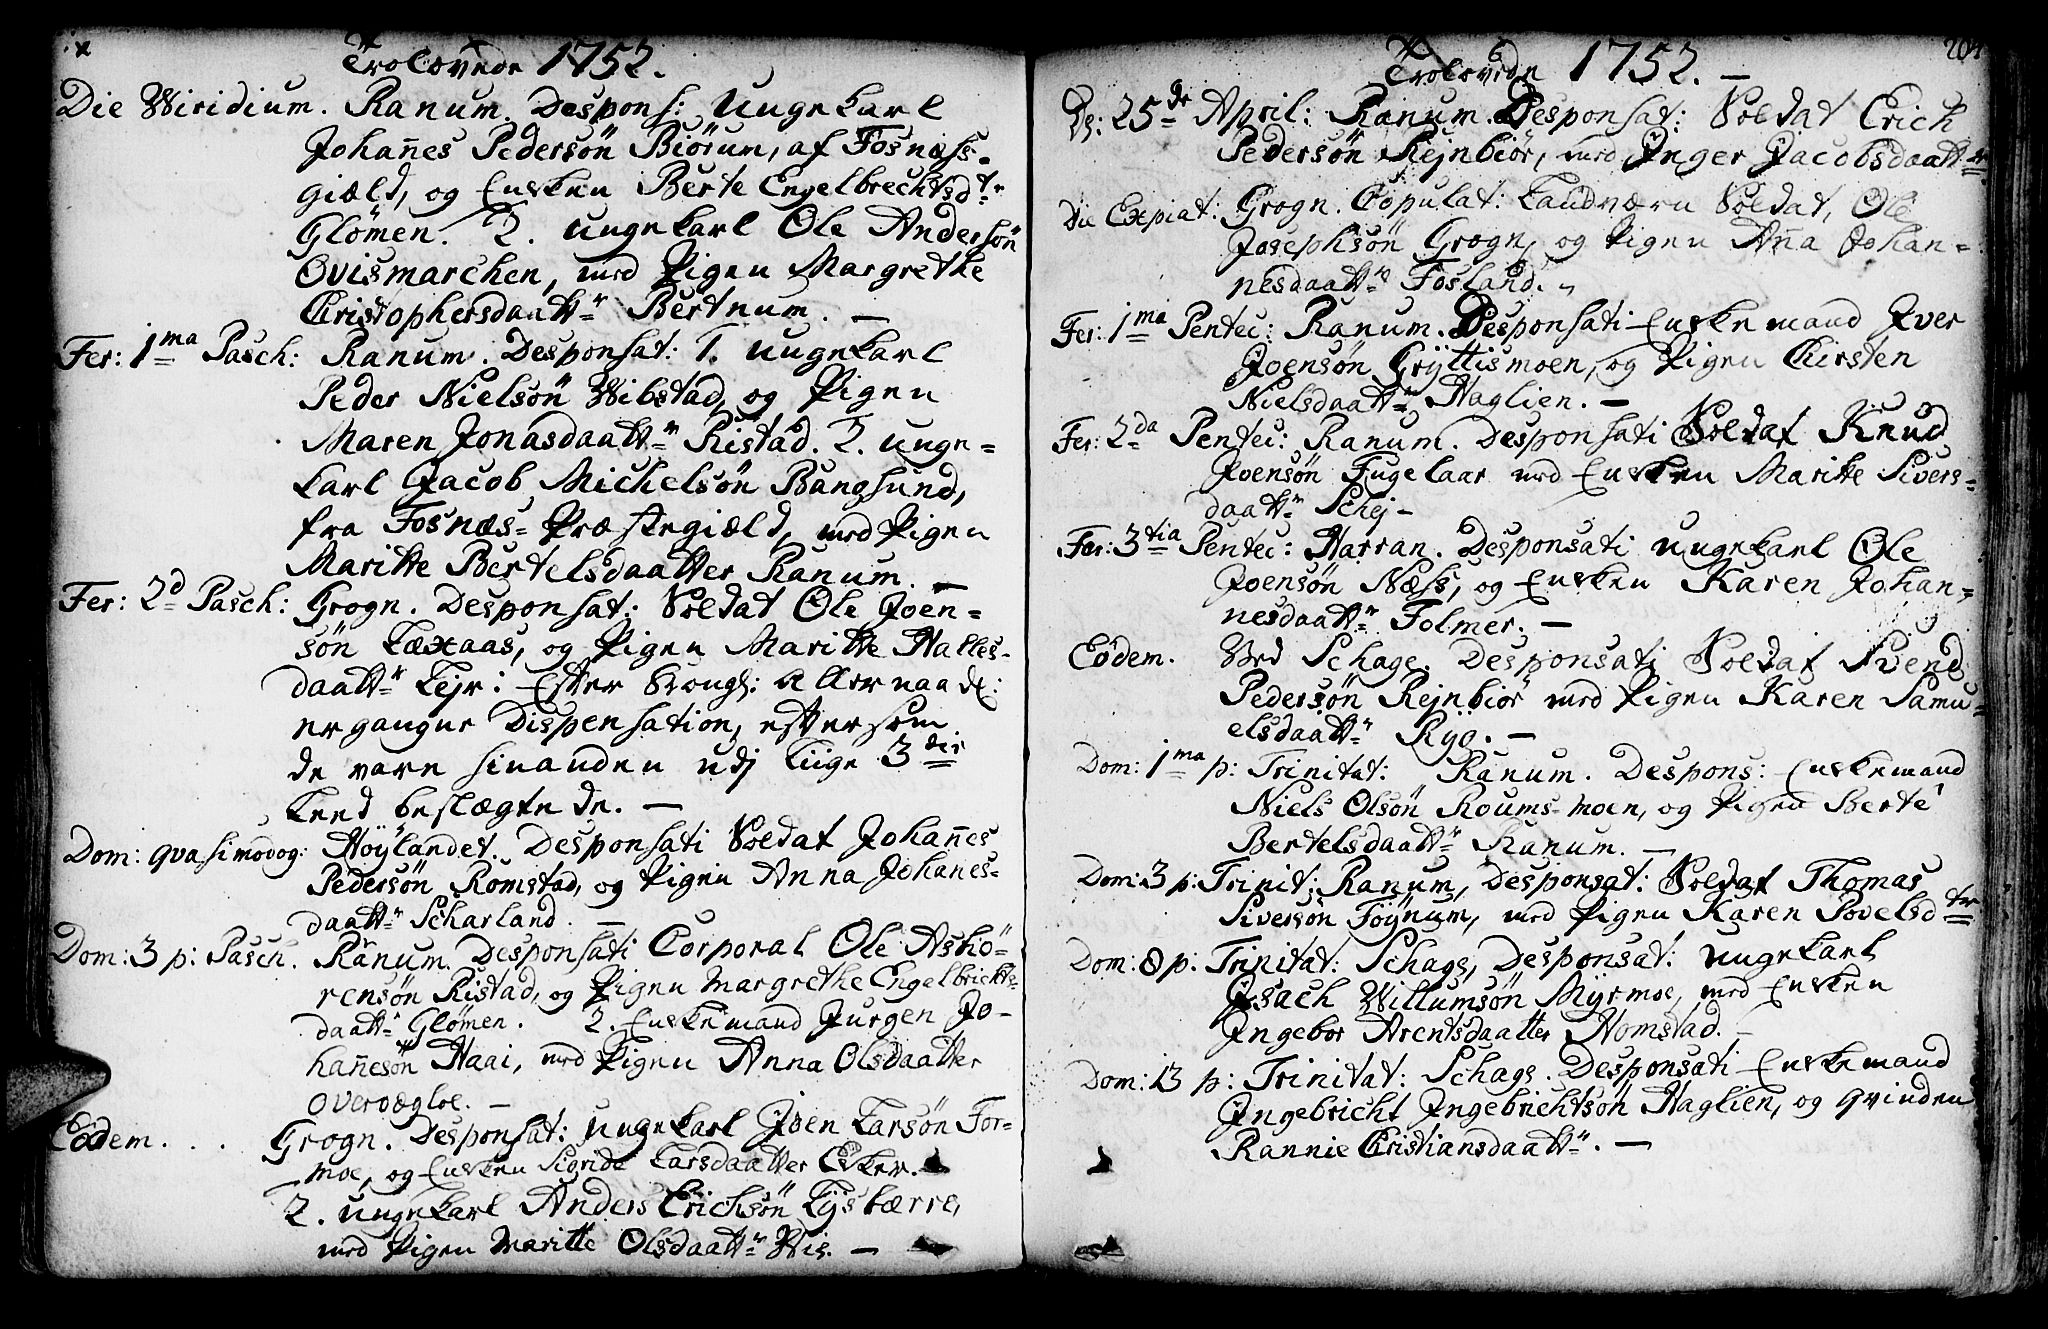 Trolovede 1752.
Die Viridium. Ranum. Despons: Ungekarl
Johannes Pedersön Biörum, af Fosnæss-
giæld, og Enken Berte Engelbrechtsdtr
Glömen. 2. Ungekarl Ole Andersön
Ovismarchen, med Pigen Margrethe
Christophersdaattr Bertnum. —
Fer: 1ma Pasch: Ranum. Desponsat: 1. Ungekarl
Peder Nielsön Wibstad, og Pigen
Maren Jonasdaattr Ristad. 2. Unge-
karl Jacob Michelsön Bangsund,
fra Fosnæs-Præstegiæld, med Pigen
Maritte Bertelsdaatter Ranum. —
Fer: 2d Pasch: Grogn. Desponsat: Soldat Ole Joen-
sön Laxaas, og Pigen Maritte Halles-
daattr Lejr: Efter Kongl: Allernaad:
ergangne Dispensation, eftersom
de vare hinanden udj Liige 3die
Leed beslægtede. —
Dom: qvasimodog: Höÿlandet. Desponsati Soldat Johannes
Pedersön Romstad, og Pigen Anna Johanes-
daattr Scharland. —
Dom: 3 p: Pasch. Ranum. Desponsati Corporal Ole Asbö-
rensön Ristad, og Pigen Margrethe Engelbrichts-
daattr Glömen. 2. Enkemand Jurgen Jo-
hannesön Haai, med Pigen Anna Olsdaatter
Overvægloe. —
Eodem. . . Grogn. Desponsat: Ungekarl Joen Larsön For-
moe, og Enken Sigride Larsdaatter Esker.
2. Ungekarl Anders Erichsön Lÿsbærre,
med Pigen Maritte Olsdaattr Wie. —
Trolovede 1752. —
204
D: 25de April: Ranum. Desponsat: Soldat Erich
Pedersön Rejnbiör, med Inger Jacobsdaatter
Die Expiat: Grogn. Copulat: Landværn Soldat, Ole
Josephsön Grogn, og Pigen Anna Johan-
nesdaattr Fosland.
Fer: 1ma Pentec: Ranum. Desponsati Enkemand Iver
Joensön Grÿttismoen, og Pigen Chirsten
Nielsdaattr Haglien. —
Fer: 2da Pentec: Ranum. Desponsati Soldat Knud
Joensön Fugelaar med Enken Maritte Sivers-
daattr Schej —
Fer: 3tia Pentec: Harran. Desponsati Ungekarl Ole
Joensön Næss, og Enken Karen Johan-
nesdaattr Folmer. —
Eodem. Ved Schage. Desponsati Soldat Svend
Pedersön Rejnbiör med Pigen Karen Samu-
elsdaattr Rÿo. —
Dom: 1ma p: Trinitat: Ranum. Despons: Enkemand
Niels Olsön Roums-moen, og Pigen Berte
Bertelsdaattr Ranum. —
Dom: 3 p: Trinit: Ranum, Desponsat: Soldat Thomas
Siversön Föÿnum, med Pigen Karen Povelsdtr
Dom: 8 p: Trinitat: Schage, Desponsat: Ungekarl
Isach Willumsön Mÿrmoe, med Enken
Ingebor Arentsdaatter Homstad. —
Dom: 13 p: Trinitat: Schage. Desponsati Enkemand
Ingebricht Ingebrichtsön Haglien, og Qvinden
Rannie Christiansdaattr. —